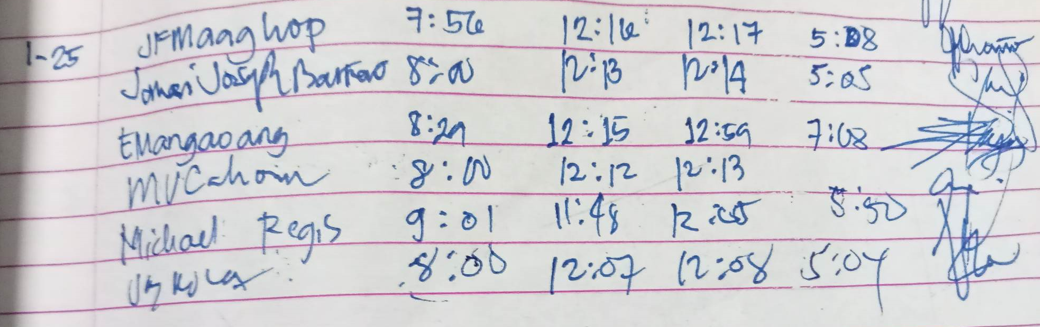 1-25 JFMaaghop 7:56 12:16 12:17 5:08
Joseph 8:00 12:13 12:14 5:05
EMangaoang 8:29 12:15 12:59 7:08
8:00 12:12 12:13
Michael Regis 9:01 11:48 12:05 5:50
8:00 12:07 12:08 5:04